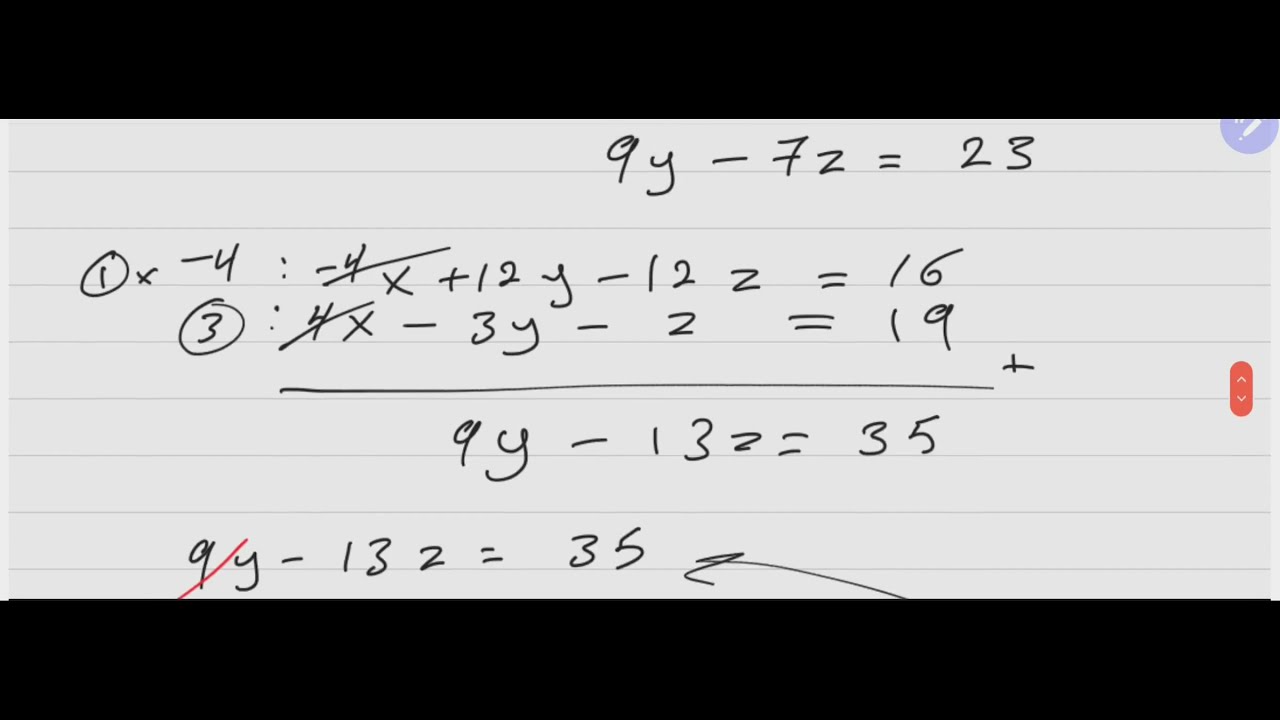 9y - 7z = 23
① x -4 : -4x + 12y - 12z = 16
③ : 4x - 3y - z = 19
+
9y - 13z = 35
9y - 13z = 35